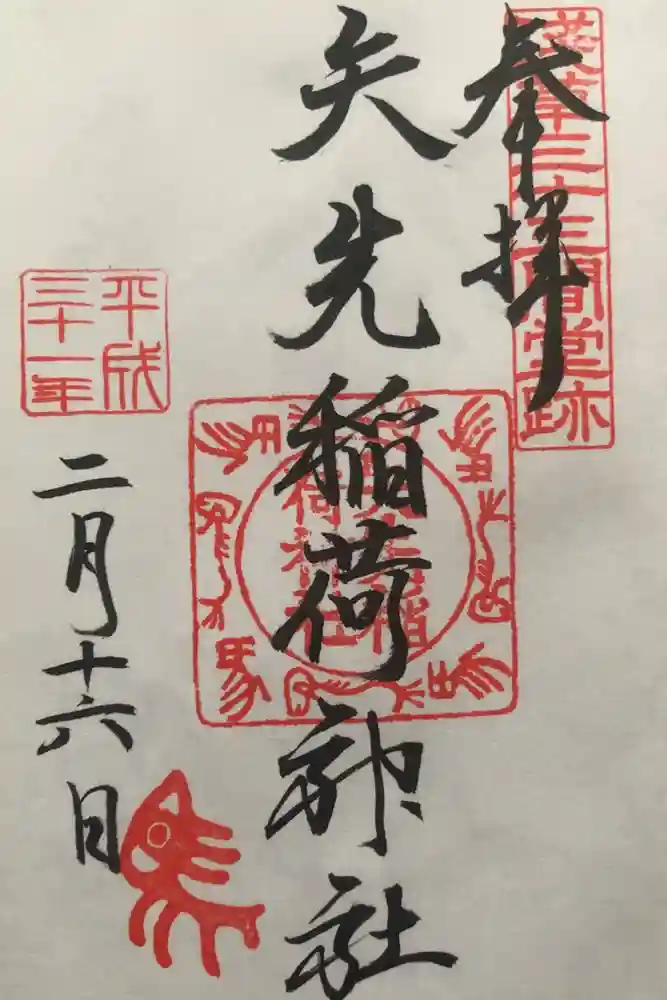 奉拝
浅草三十三間堂跡
矢先稲荷神社
平成
三十一年
二月十六日